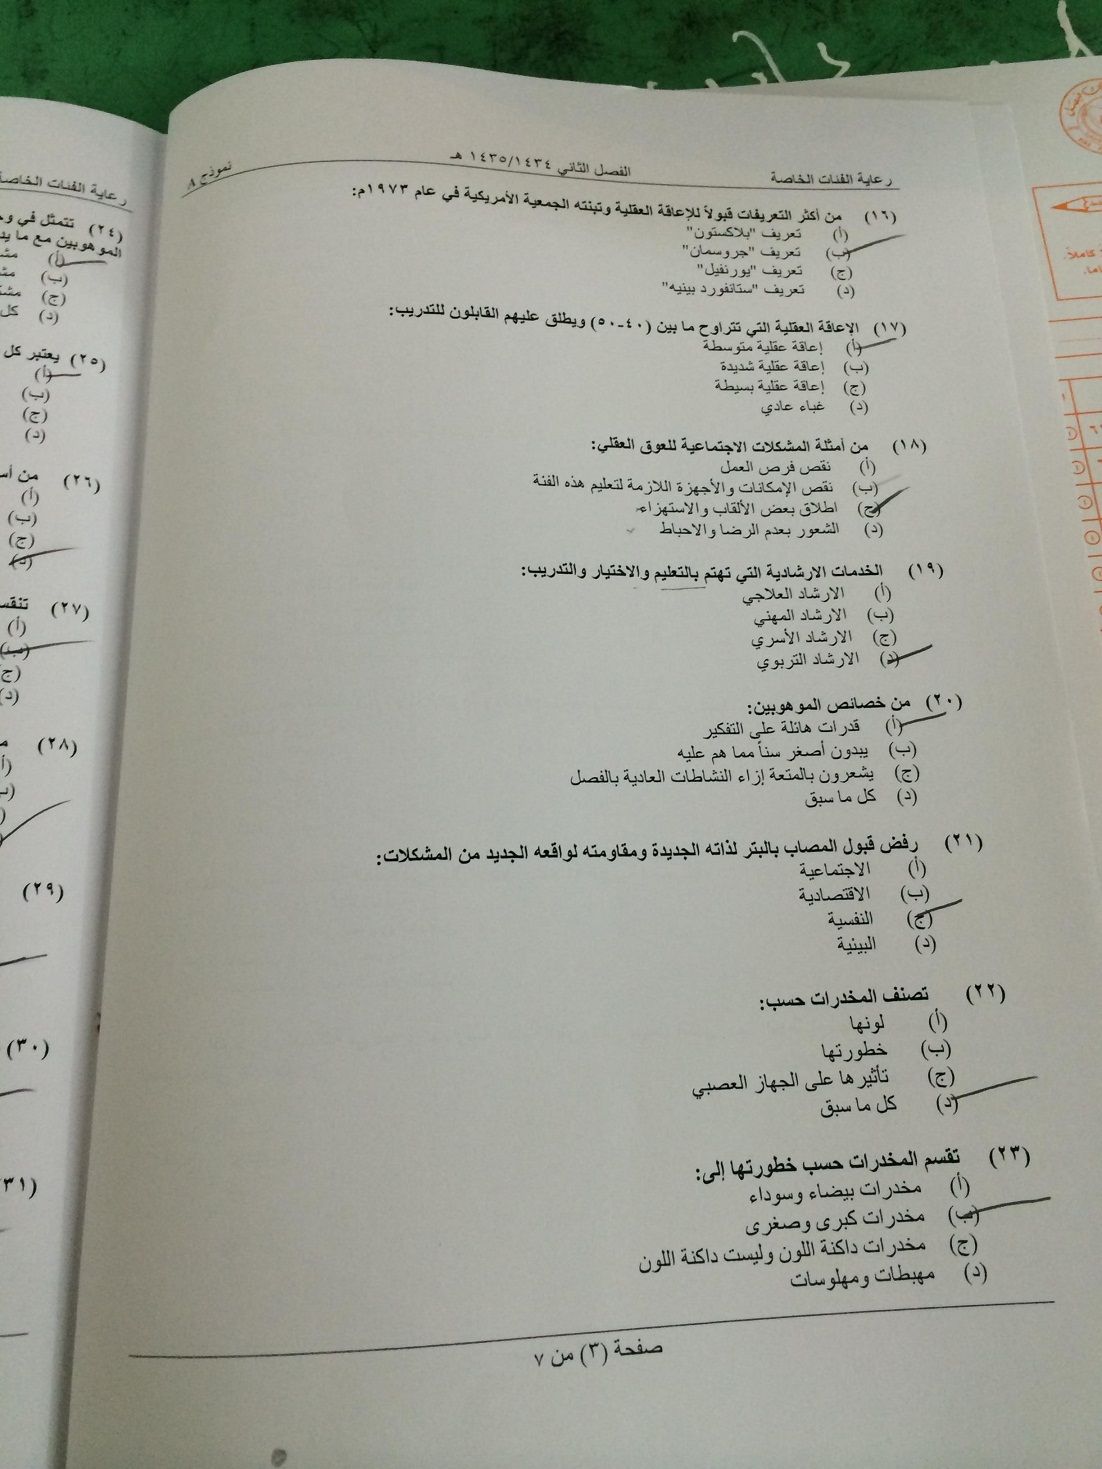 رعاية الفئات الخاصة
الفصل الثاني ١٤٣٥/١٤٣٤ هـ
نموذج A
(١٦) من أكثر التعريفات قبولاً للإعاقة العقلية وتبنته الجمعية الأمريكية في عام ١٩٧٣م:
(أ) تعريف "بلاكستون"
(ب) تعريف "جروسمان"
(ج) تعريف "يورنفيل"
(د) تعريف "ستانفورد بينيه"
(١٧) الإعاقة العقلية التي تتراوح ما بين (٤٠-٥٠) ويطلق عليهم القابلون للتدريب:
(أ) إعاقة عقلية متوسطة
(ب) إعاقة عقلية شديدة
(ج) إعاقة عقلية بسيطة
(د) غباء عادي
(١٨) من أمثلة المشكلات الاجتماعية للعوق العقلي:
(أ) نقص فرص العمل
(ب) نقص الإمكانات والأجهزة اللازمة لتعليم هذه الفئة
(ج) اطلاق بعض الألقاب والاستهزاء
(د) الشعور بعدم الرضا والاحباط
(١٩) الخدمات الارشادية التي تهتم بالتعليم والاختيار والتدريب:
(أ) الارشاد العلاجي
(ب) الارشاد المهني
(ج) الارشاد الأسري
(د) الارشاد التربوي
(٢٠) من خصائص الموهوبين:
(أ) قدرات هائلة على التفكير
(ب) يبدون أصغر سناً مما هم عليه
(ج) يشعرون بالمتعة إزاء النشاطات العادية بالفصل
(د) كل ما سبق
(٢١) رفض قبول المصاب بالبتر لذاته الجديدة ومقاومته لواقعه الجديد من المشكلات:
(أ) الاجتماعية
(ب) الاقتصادية
(ج) النفسية
(د) البيئية
(٢٢) تصنف المخدرات حسب:
(أ) لونها
(ب) خطورتها
(ج) تأثيرها على الجهاز العصبي
(د) كل ما سبق
(٢٣) تقسم المخدرات حسب خطورتها إلى:
(أ) مخدرات بيضاء وسوداء
(ب) مخدرات كبرى وصغرى
(ج) مخدرات داكنة اللون وليست داكنة اللون
(د) مهبطات ومهلوسات
صفحة (٣) من ٧
رعاية الفئات الخاصة
(٢٤) تتمثل في
الموهوبين مع ما
(أ)
(ب)
(ج)
(د) كل
(٢٥) يعتبر كل
(أ)
(ب)
(ج)
(د)
(٢٦) من
(أ)
(ب)
(ج)
(د)
(٢٧)
(أ)
(ب)
(ج)
(د)
(٢٨)
(٢٩)
(٣٠)